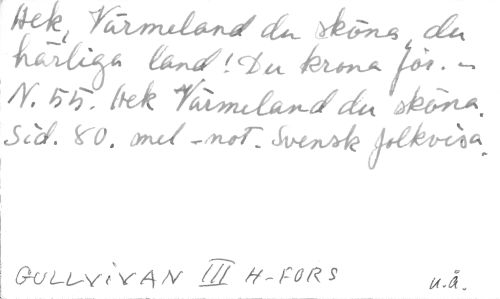 Hek, Värmeland du sköna, du
härliga land! Du krona för. -
N. 55. Hek Värmeland du sköna.
Sid. 80. mel - not. Svensk folkvisa.
GULLVIVAN III H-FORS u.å.